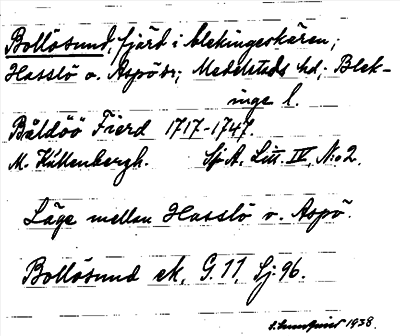 Bollösund, fjärd i blekingeskären;
Hasslö o. Aspö sr; Medelstads hd; Blek-
inge l.
Båldöö Fierd 1717-1747.
M. Küllenbergh. Sj. A. Litt. IV, N:o 2.
Läge mellan Hasslö o. Aspö.
Bollösund ek. G. 11, Sj: 96.
1938.